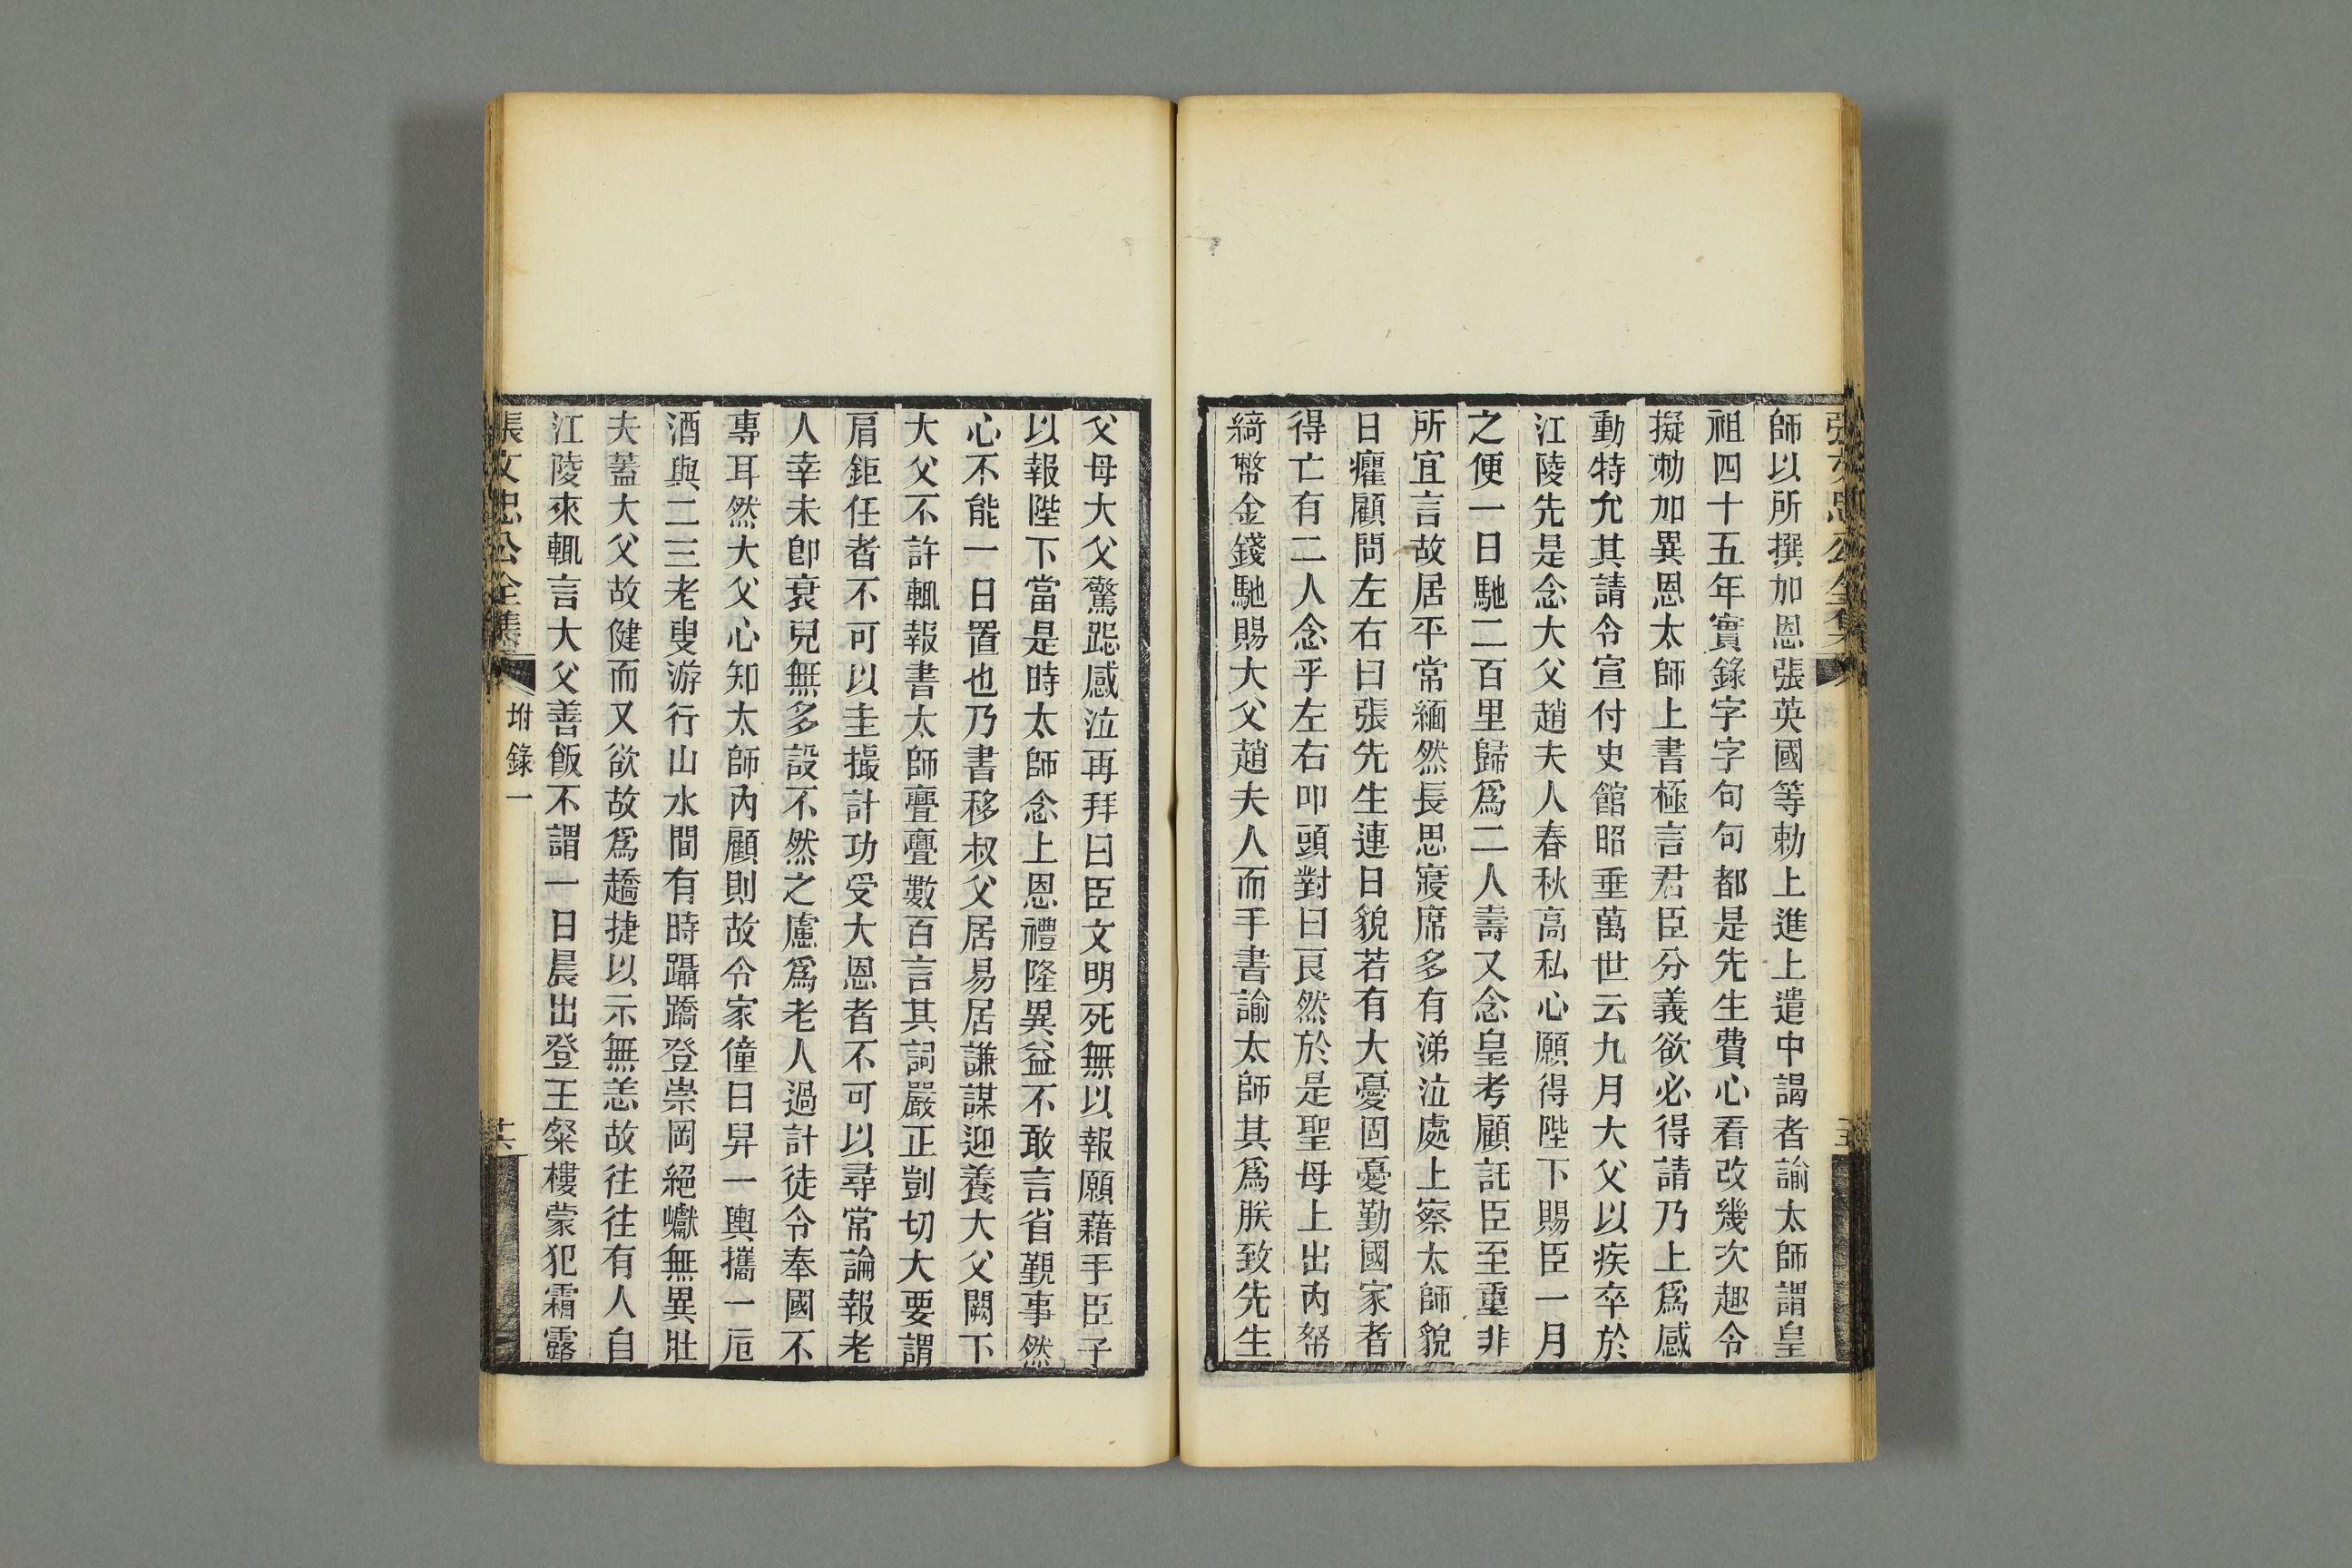 張文忠公全集
師以所撰加恩張英國等勅上進上遣中謁者諭太師謂皇
祖四十五年實錄字字句句都是先生費心看改幾次趣令
擬勅加異恩太師上書極言君臣分義欲必得請乃上爲感
動特允其請令宣付史館昭垂萬世云九月大父以疾卒於
江陵先是念大父趙夫人春秋高私心願得陛下賜臣一月
之便一日馳二百里歸爲二人壽又念皇考顧託臣至重非
所宜言故居平常緬然長思寢席多有涕泣處上察太師貌
日癯顧問左右曰張先生連日貌若有大憂固憂勤國家者
得亡有二人念乎左右叩頭對曰良然於是聖母上出內帑
綺幣金錢馳賜大父趙夫人而手書諭太師其爲朕致先生
父母大父驚跽感泣再拜曰臣文明死無以報願藉手臣子
以報陛下當是時太師念上恩禮隆異益不敢言省覲事然
心不能一日置也乃書移叔父居易居謙謀迎養大父闕下
大父不許輒報書太師亹亹數百言其詞嚴正剴切大要謂
肩鉅任者不可以圭撮計功受大恩者不可以尋常論報老
人幸未卽衰兒無多設不然之慮爲老人過計徒令奉國不
專耳然大父心知太師內顧則故令家僮日舁一輿攜一卮
酒與二三老叟游行山水間有時躡蹻登崇岡絕巘無異壯
夫蓋大父故健而又欲故爲趫捷以示無恙故往往有人自
江陵來輒言大父善飯不謂一日晨出登王粲樓蒙犯霜露
張文忠公全集
坿錄一